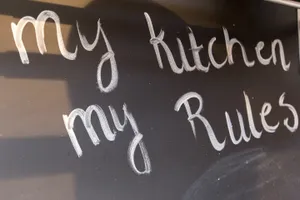 my kitchen
my Rules